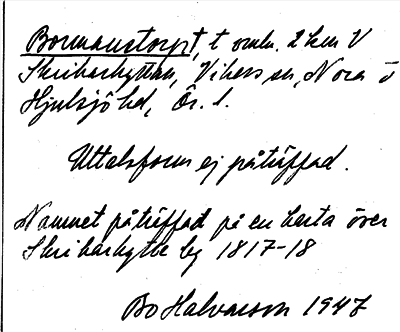 Bormanstorpt, t omkr. 2 km V
Skrikarhyttan, Vikers sn, Nora o
Hjulsjö hd, Ör. l.
Uttalsform ej påträffad.
Namnet påträffad på en karta över
Skrikarhytte by 1817-18
Bo Halvarson 1947